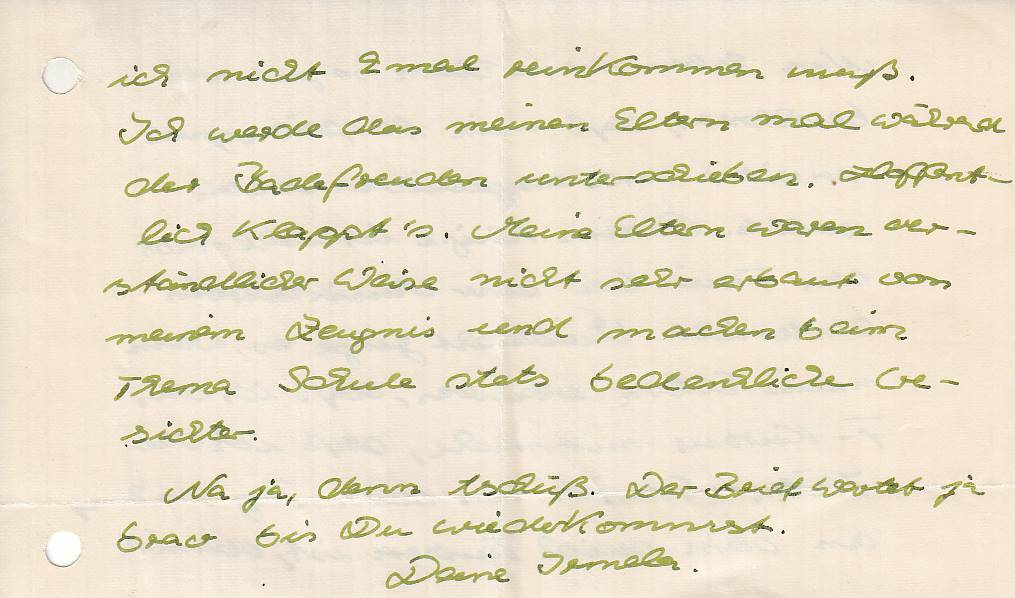 ich nicht 2 mal reinkommen muß.
Ich werde das meinen Eltern mal während
der Badefreuden unterschieben. Hoffent-
lich klappt's. Meine Eltern waren ver-
ständlicher Weise nicht sehr erbaut von
meinem Zeugnis und machen beim
Thema Schule stets bedenkliche Ge-
sichter.
Na ja, denn tschüß. Der Brief wartet ja
brav bis Du wiederkommst.
Deine Irmela.